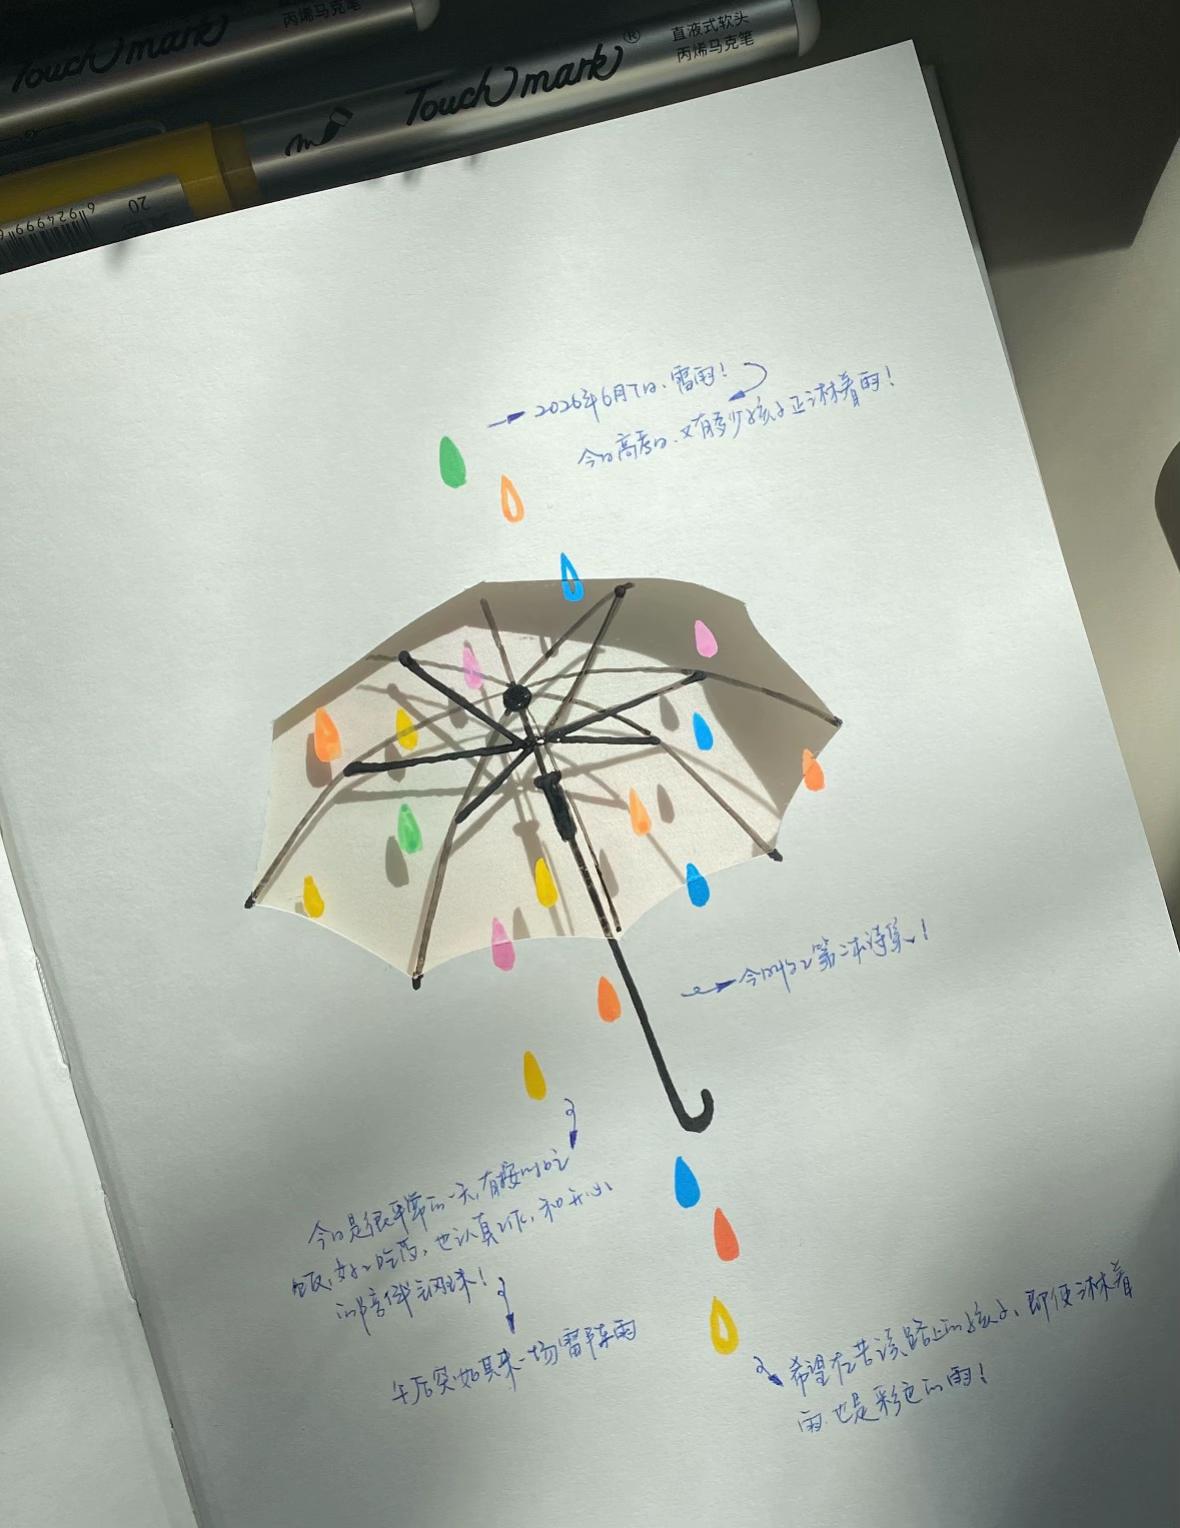 Touch mark
丙烯马克笔
Touch mark®
直液式软头
丙烯马克笔
6924999
20
2026年6月7日、雷雨！
今日高考日、又有多少孩子正淋着雨！
今日 第二本诗集！
今日是很平常的一天，有按时吃
饭，好好吃药，也认真 ，和开心
的陪伴 ！
午后突如其来一场雷阵雨
希望在苦读路上的孩子、即便淋着
雨、也是彩色的雨！